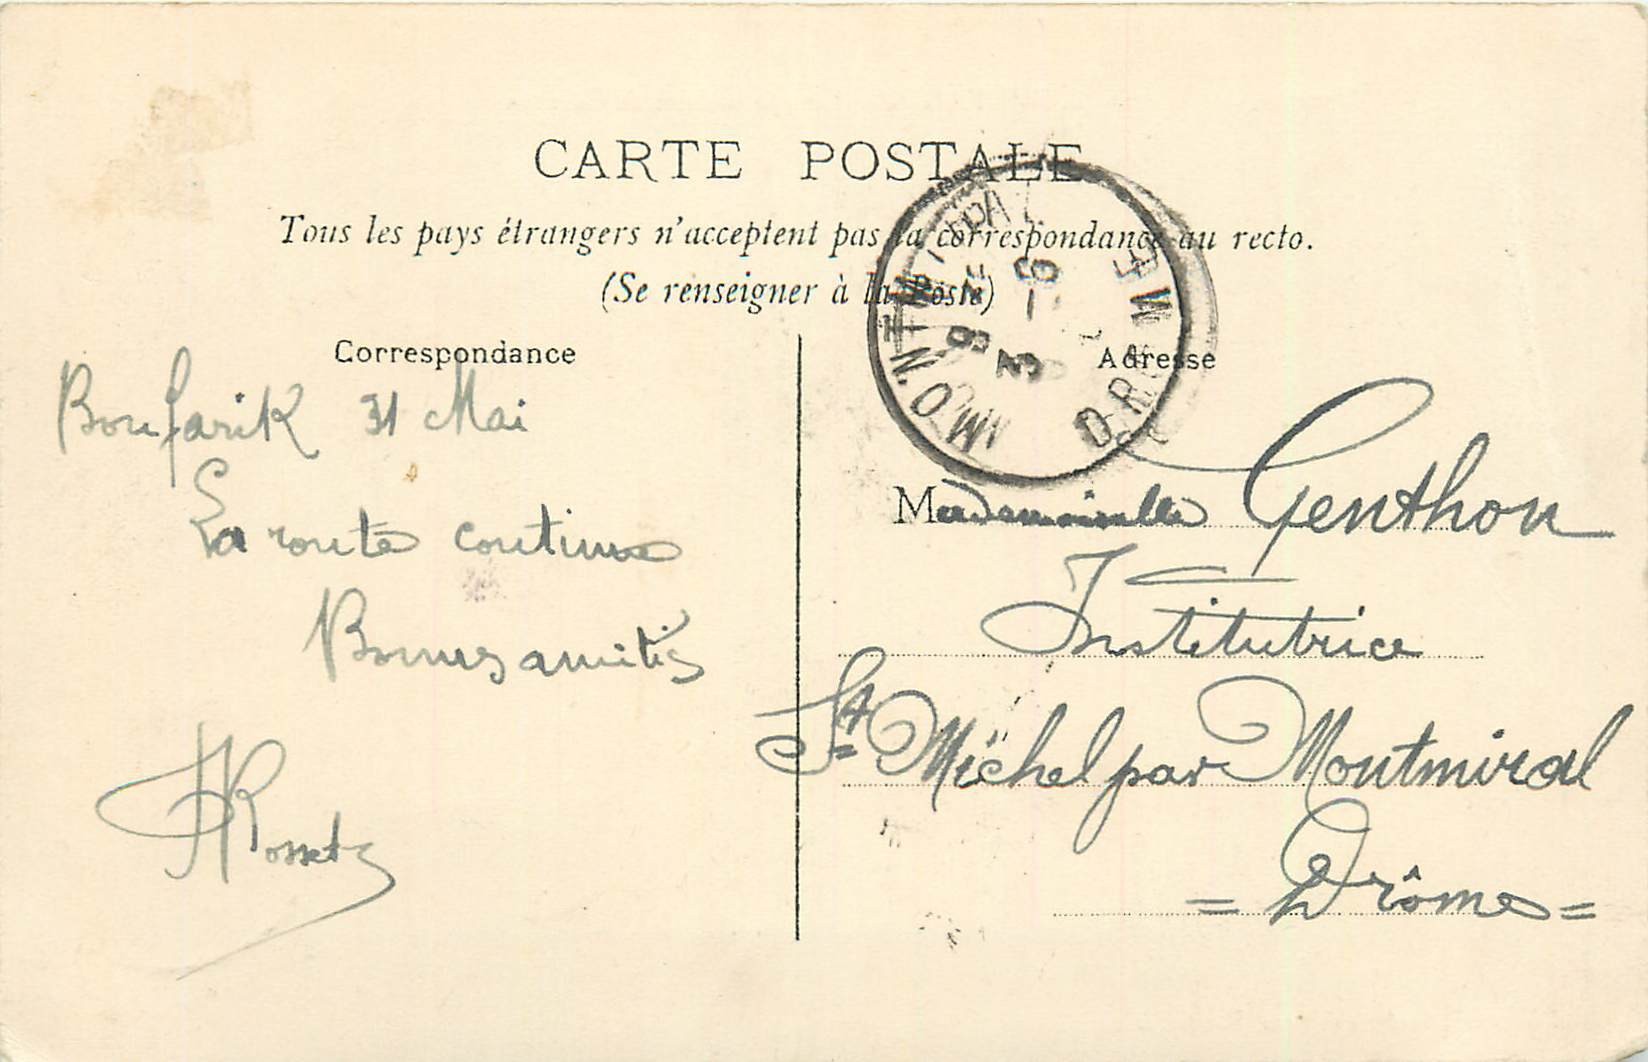 CARTE POSTALE
Tous les pays étrangers n'acceptent pas la correspondance au recto.
(Se renseigner à la Poste)
Correspondance
Boufarik 31 Mai
La route continue
Bonnes amitiés
Rosset
Adresse
Mademoiselle Genthon
Institutrice
St Michel par Montmiral
= Drôme =
MONTMIRAL
DRÔME
3 - 6